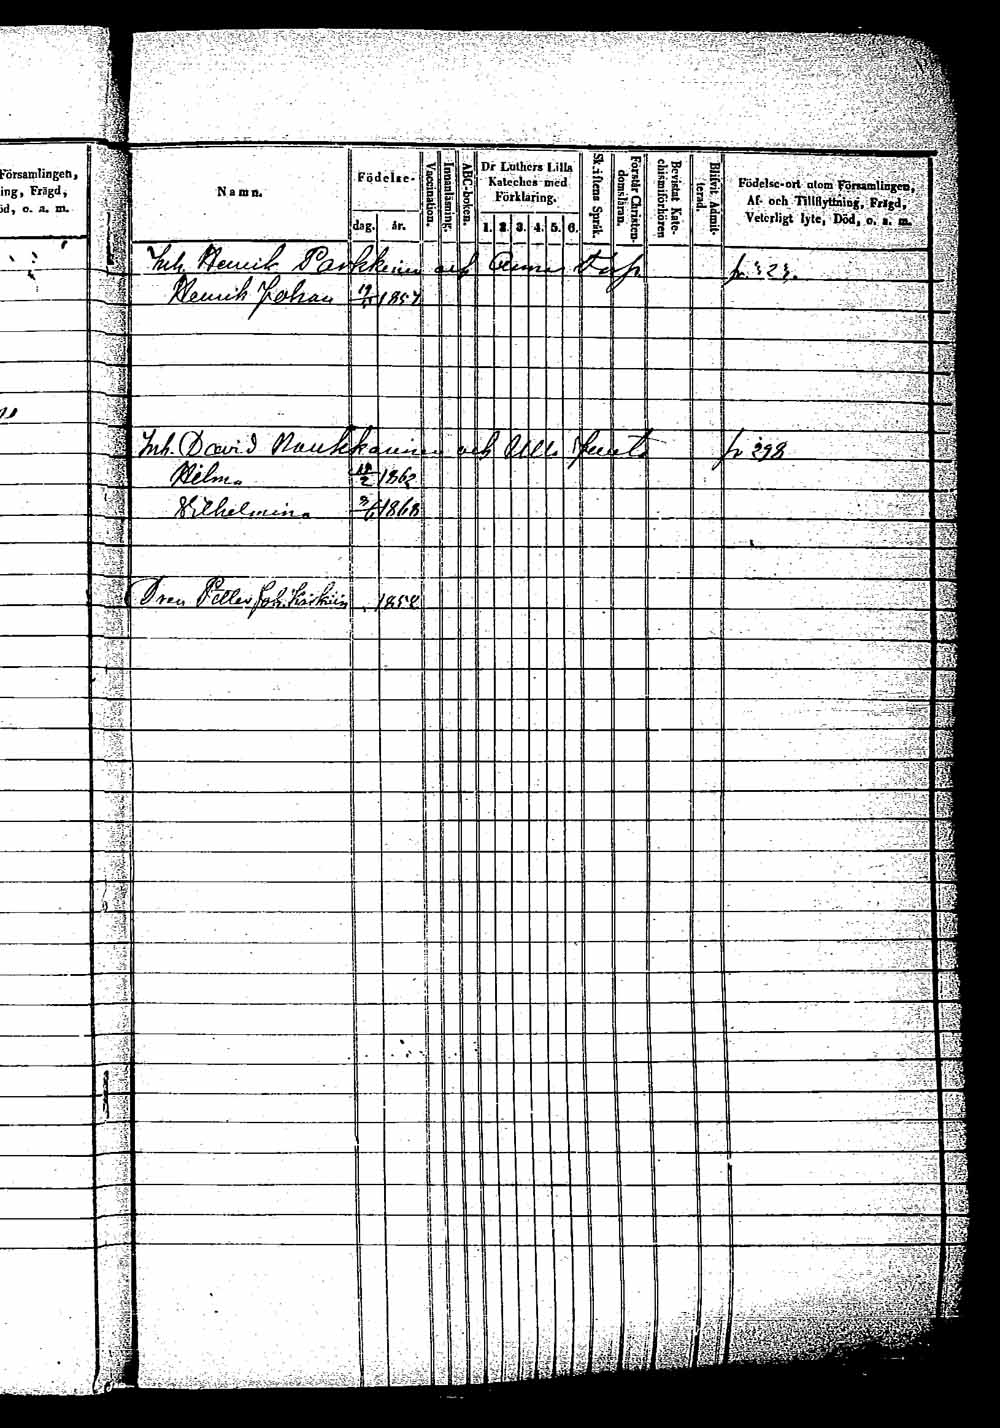 Församlingen,
ing, Frägd,
öd, o. a. m.
Namn.
Födelse-
dag. år.
Vaccination.
Innanläsning.
ABC-boken.
Dr Luthers Lilla
Kateches med
Förklaring.
1. 2. 3. 4. 5. 6.
Skiftens Språk.
Förstår Christen-
domsläran.
Bevistat Kate-
chismiförhören
Blifvit Admit-
terad.
Födelse-ort utom Församlingen,
Af- och Tillflyttning, Frägd,
Veterligt lyte, Död, o. a. m.
Inh. Henrik Parkkinen och Anna
Henrik Johan 1857
Inh. David och Ulla fr 298
Hilma 1862
Wilhelmina 1868
Dren Petter Joh. 1852